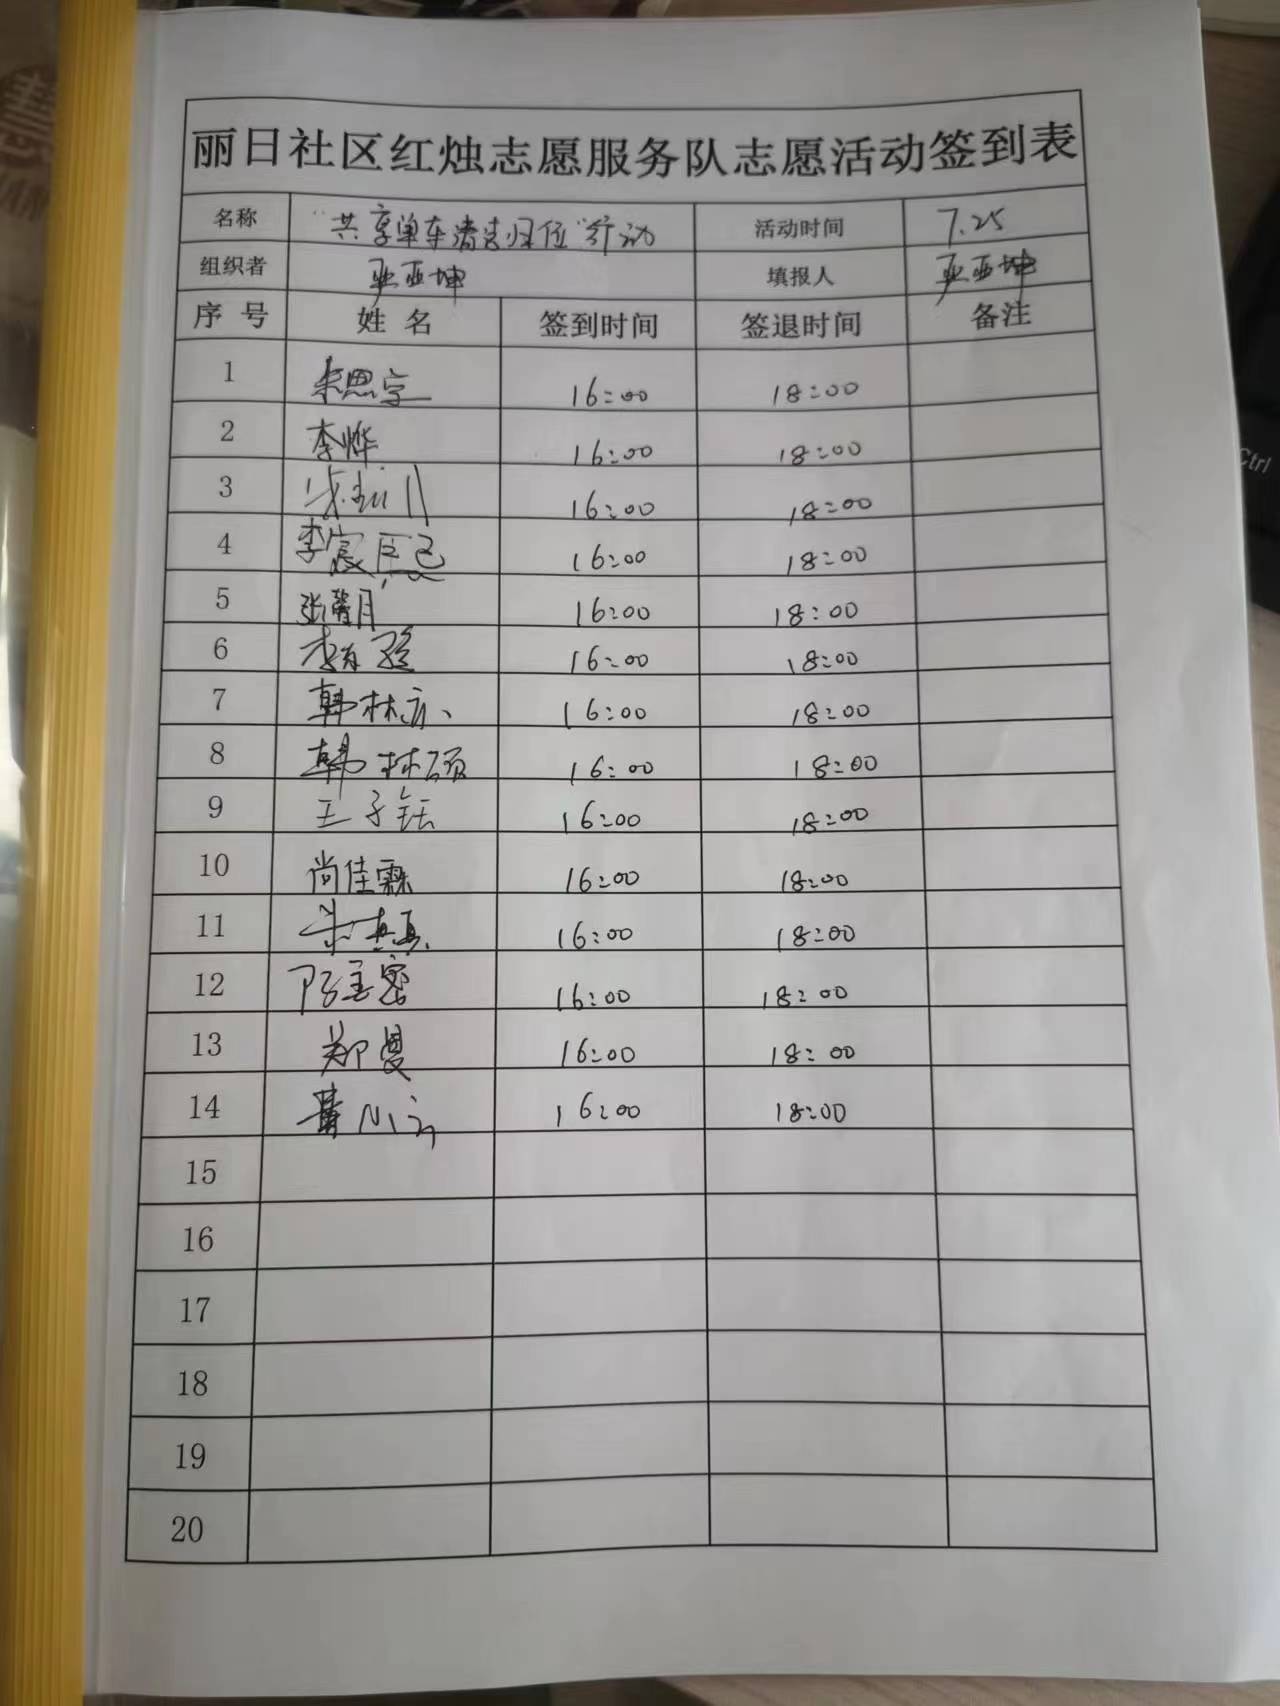 丽日社区红烛志愿服务队志愿活动签到表
名称 "共享单车清洁归位"行动 活动时间 7.25
组织者 亚坤 填报人 亚坤
序号 姓名 签到时间 签退时间 备注
1 朱思宇 16:00 18:00
2 李烨 16:00 18:00
3 16:00 18:00
4 李宸 16:00 18:00
5 张馨月 16:00 18:00
6 16:00 18:00
7 韩林 16:00 18:00
8 韩林硕 16:00 18:00
9 王子钰 16:00 18:00
10 尚佳霖 16:00 18:00
11 16:00 18:00
12 16:00 18:00
13 郑曼 16:00 18:00
14 16:00 18:00
15
16
17
18
19
20
Ctrl